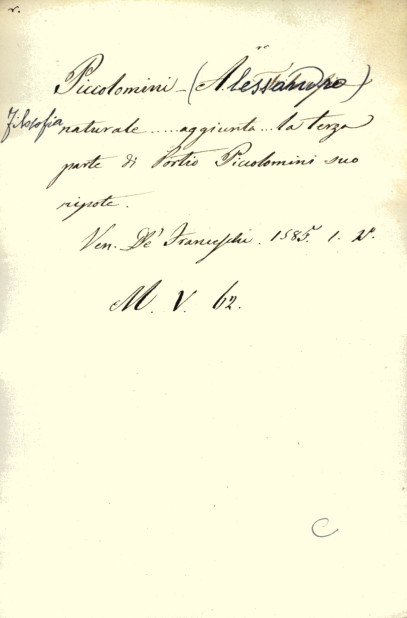 r.
Piccolomini - (Alessandro)
Filosofia naturale ..... aggiunta ... la terza
parte di Portio Piccolomini suo
nipote.
Ven. De' Franceschi. 1585. 1. V.
M. V. 62.
C